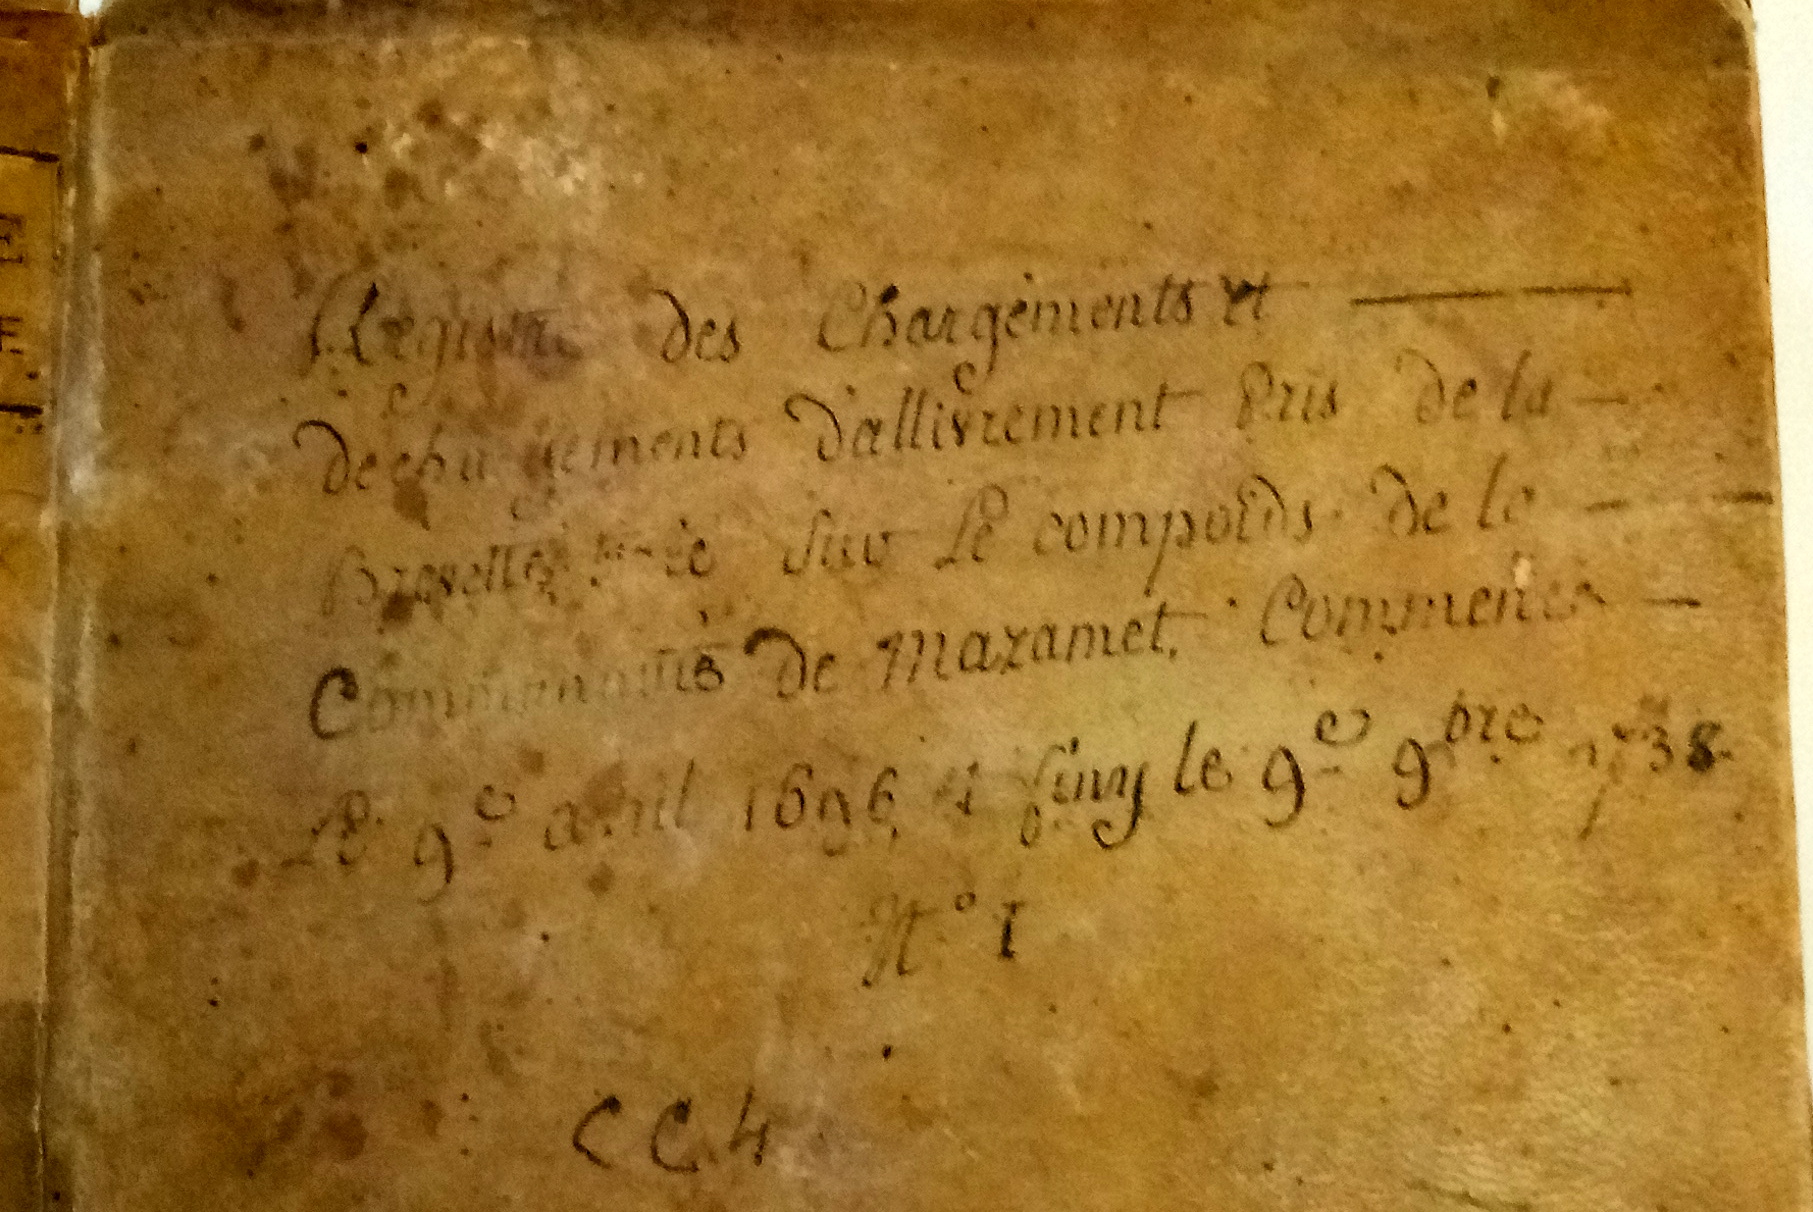 E
E
Registre des Chargements et
dechargements d'allivrement Pris de la
Brevette tirée Sur Le compoids de la
Communauté de Mazamet. Commencé
Le 9e avril 1696 et finy le 9e 9bre 1738
N° I
CC.4